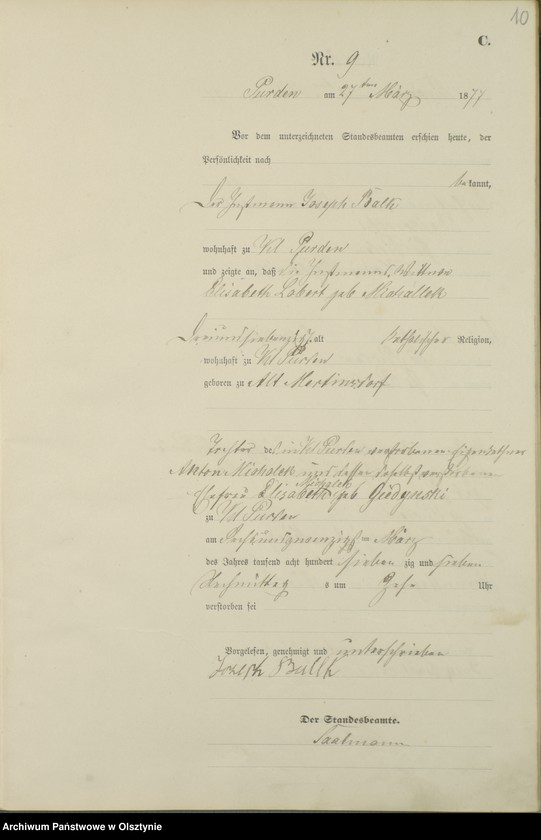 10
C.
Nr. 9
Purden am 27ten März 1877
Vor dem unterzeichneten Standesbeamten erschien heute, der
Persönlichkeit nach
bekannt,
Der Instmann Joseph Balk
wohnhaft zu Kl Purden
und zeigte an, daß die Instmanns Wittwe
Elisabeth Labert geb Michallek
alt katholischer Religion,
wohnhaft zu Kl Purden
geboren zu Alt Martinsdorf
Tochter des in Kl Purden verstorbenen Eigenkäthner
Anton Michalek und dessen daselbst verstorbene
Ehefrau Elisabeth Michalek geb
zu Kl Purden
am März
des Jahres tausend acht hundert sieben zig und sieben
Nachmittag s um Uhr
verstorben sei
Vorgelesen, genehmigt und unterschrieben
Joseph Balk
Der Standesbeamte.
Saalmann
Archiwum Państwowe w Olsztynie